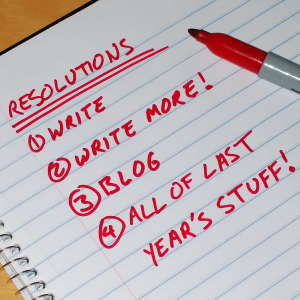 RESOLUTIONS
① WRITE
② WRITE MORE!
③ BLOG
④ ALL OF LAST
YEAR'S STUFF!